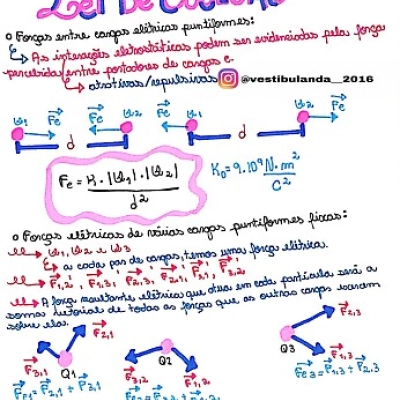 Lei De Coulomb
o Forças entre cargas elétricas puntiformes:
As interações eletrostáticas podem ser evidenciadas pela força
percebida entre portadores de cargas e-
atrativas/repulsivas @vestibulanda__2016
Q1 Fe Fe Q2 Fe Q1 Q2 Fe
d d
Fe = K.|Q1|.|Q2| / d²
K0 = 9.10⁹ N.m² / C²
o Forças elétricas de várias cargas puntiformes fixas:
Q1, Q2 e Q3
a cada par de cargas, temos uma força elétrica.
F1,2 ; F1,3 ; F2,3 ; F2,1 ; F3,1 ; F3,2
A força resultante elétrica que atua em cada partícula será a
soma vetorial de todas as forças que as outras cargas exercem
sobre elas.
F2,1
F3,1 Q1 Q2 Q3 F2,3
F3,2 F1,2 F1,3
FF1 = F2,1 + F3,1 Fe3 = F1,3 + F2,3